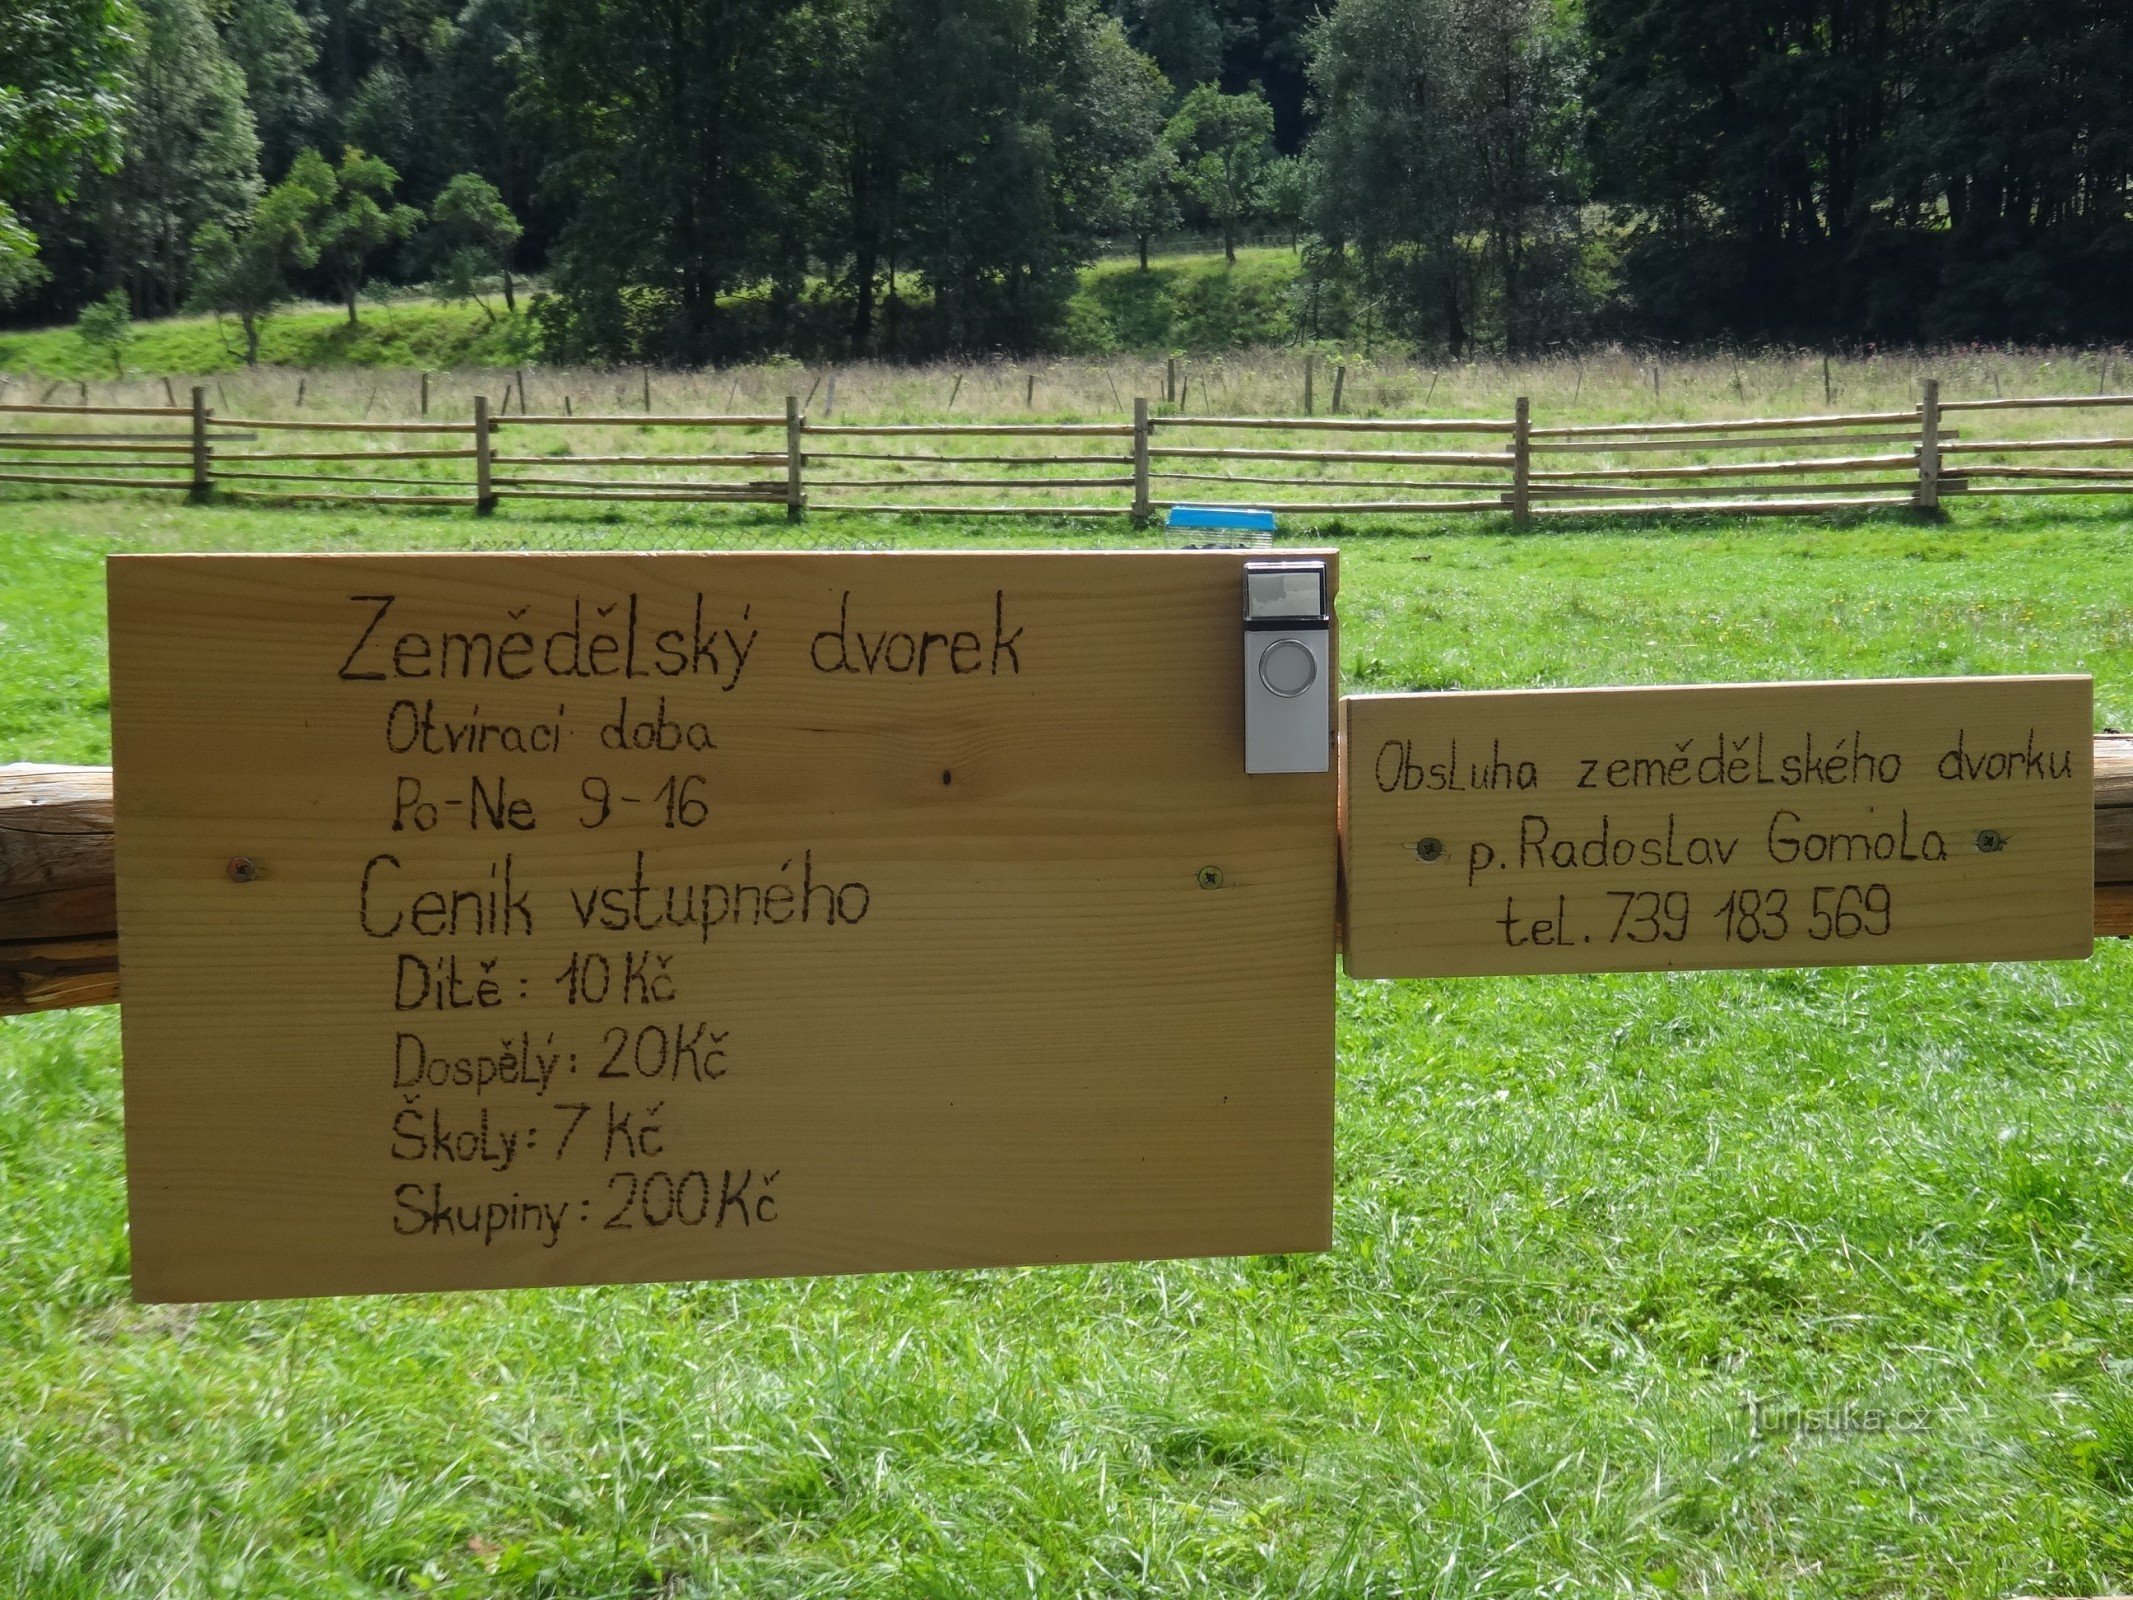 Zemědělský dvorek
Otvírací doba
Po-Ne 9-16
Ceník vstupného
Dítě: 10 Kč
Dospělý: 20Kč
Školy: 7 Kč
Skupiny: 200Kč
Obsluha zemědělského dvorku
p. Radoslav Gomola
tel. 739 183 569
Turistika.cz